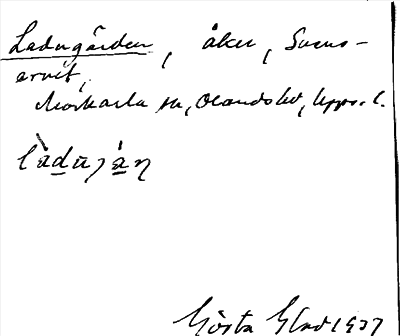 Ladugården, åker, Svens-
arvit,
Morkarla sn, Olandshd, Upps. l.
làdu̠ɟá̠ŋ
Gösta Glad 1937